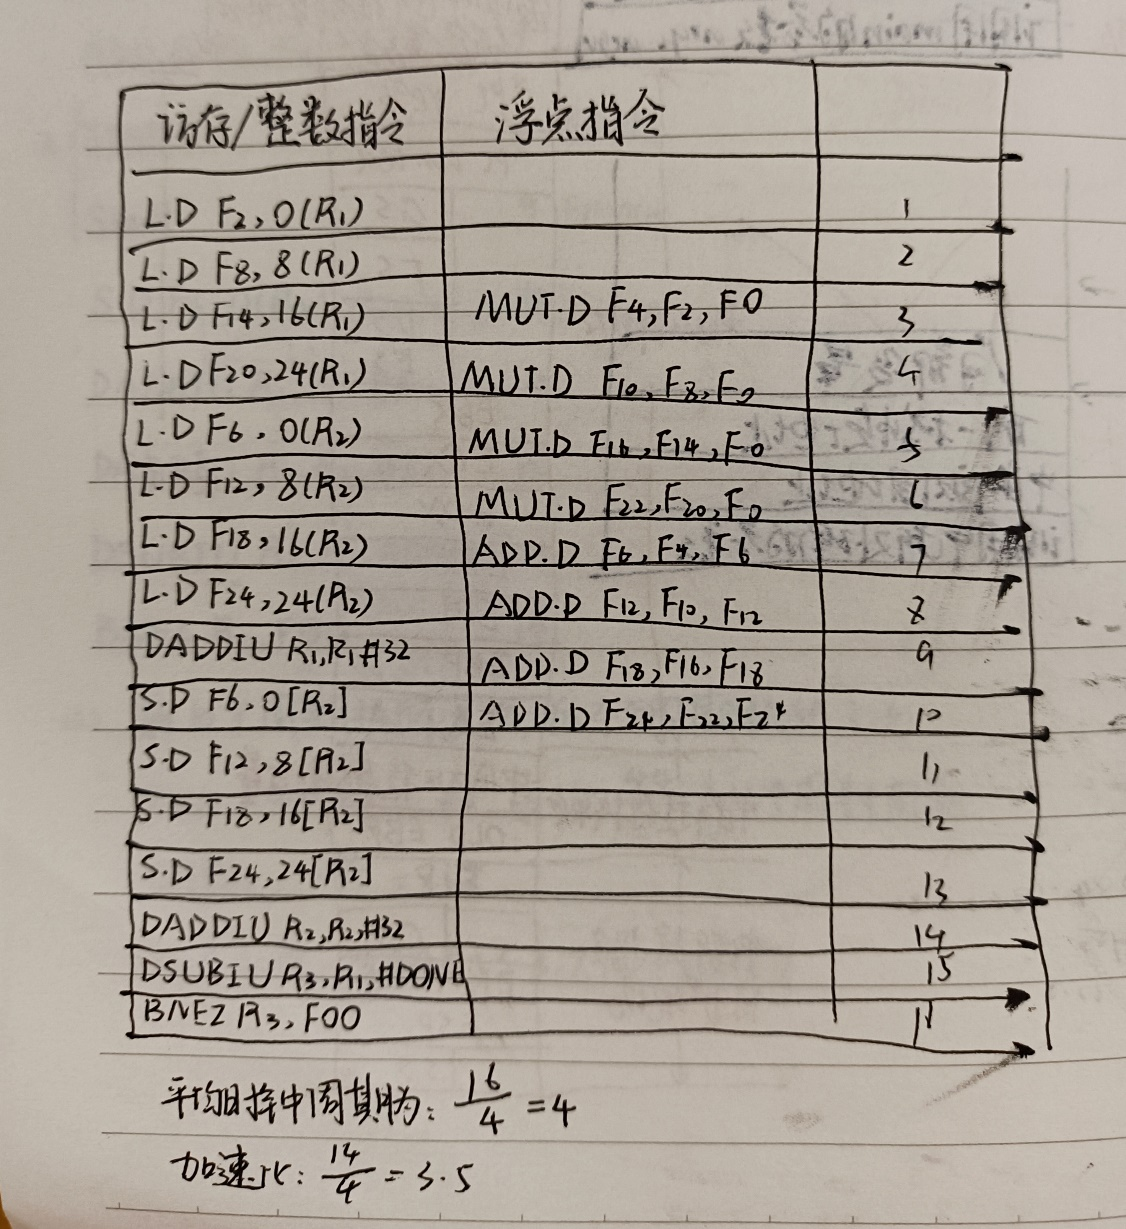 访存/整数指令 浮点指令
L.D F2, 0(R1) 1
L.D F8, 8(R1) 2
L.D F14, 16(R1) MUT.D F4, F2, F0 3
L.D F20, 24(R1) MUT.D F10, F8, F0 4
L.D F6, 0(R2) MUT.D F16, F14, F0 5
L.D F12, 8(R2) MUT.D F22, F20, F0 6
L.D F18, 16(R2) ADD.D F6, F4, F6 7
L.D F24, 24(R2) ADD.D F12, F10, F12 8
DADDIU R1, R1, #32 ADD.D F18, F16, F18 9
S.D F6, 0[R2] ADD.D F24, F22, F24 10
S.D F12, 8[R2] 11
S.D F18, 16[R2] 12
S.D F24, 24[R2] 13
DADDIU R2, R2, #32 14
DSUBIU R3, R1, #DONE 15
BNEZ R3, FOO
平均时钟周期为: 16/4 = 4
加速比: 14/4 = 3.5